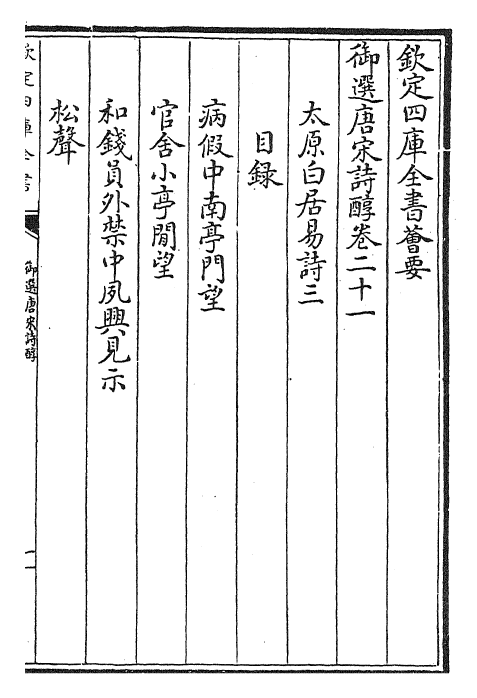 欽定四庫全書薈要
御選唐宋詩醇卷二十一
太原白居易詩三
目録
病假中南亭閒望
官舍小亭閒望
和錢員外禁中夙興見示
松聲
欽定四庫全書
御選唐宋詩醇
一